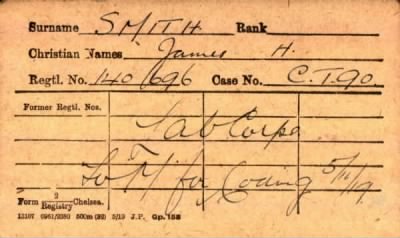 Surname SMITH Rank
Christian Names James H.
Regtl. No. 140/696 Case No. C.T.90.
Former Regtl. Nos.
Lab Corps
To M for Coding 5/11/19.
Form 2/Registry-Chelsea.
13107 6961/2380 500m (32) 5/19 J.P. Gp. 158